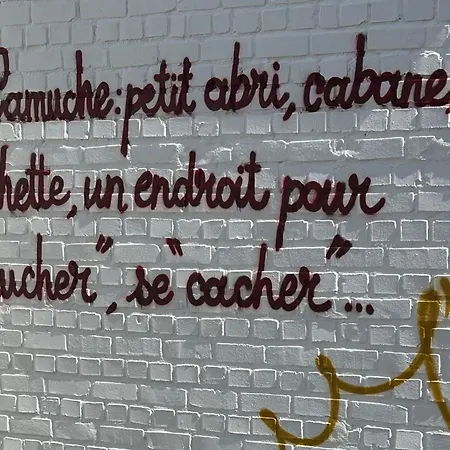 Camuche: petit abri, cabane,
hette, un endroit pour
ucher", se "cacher"...